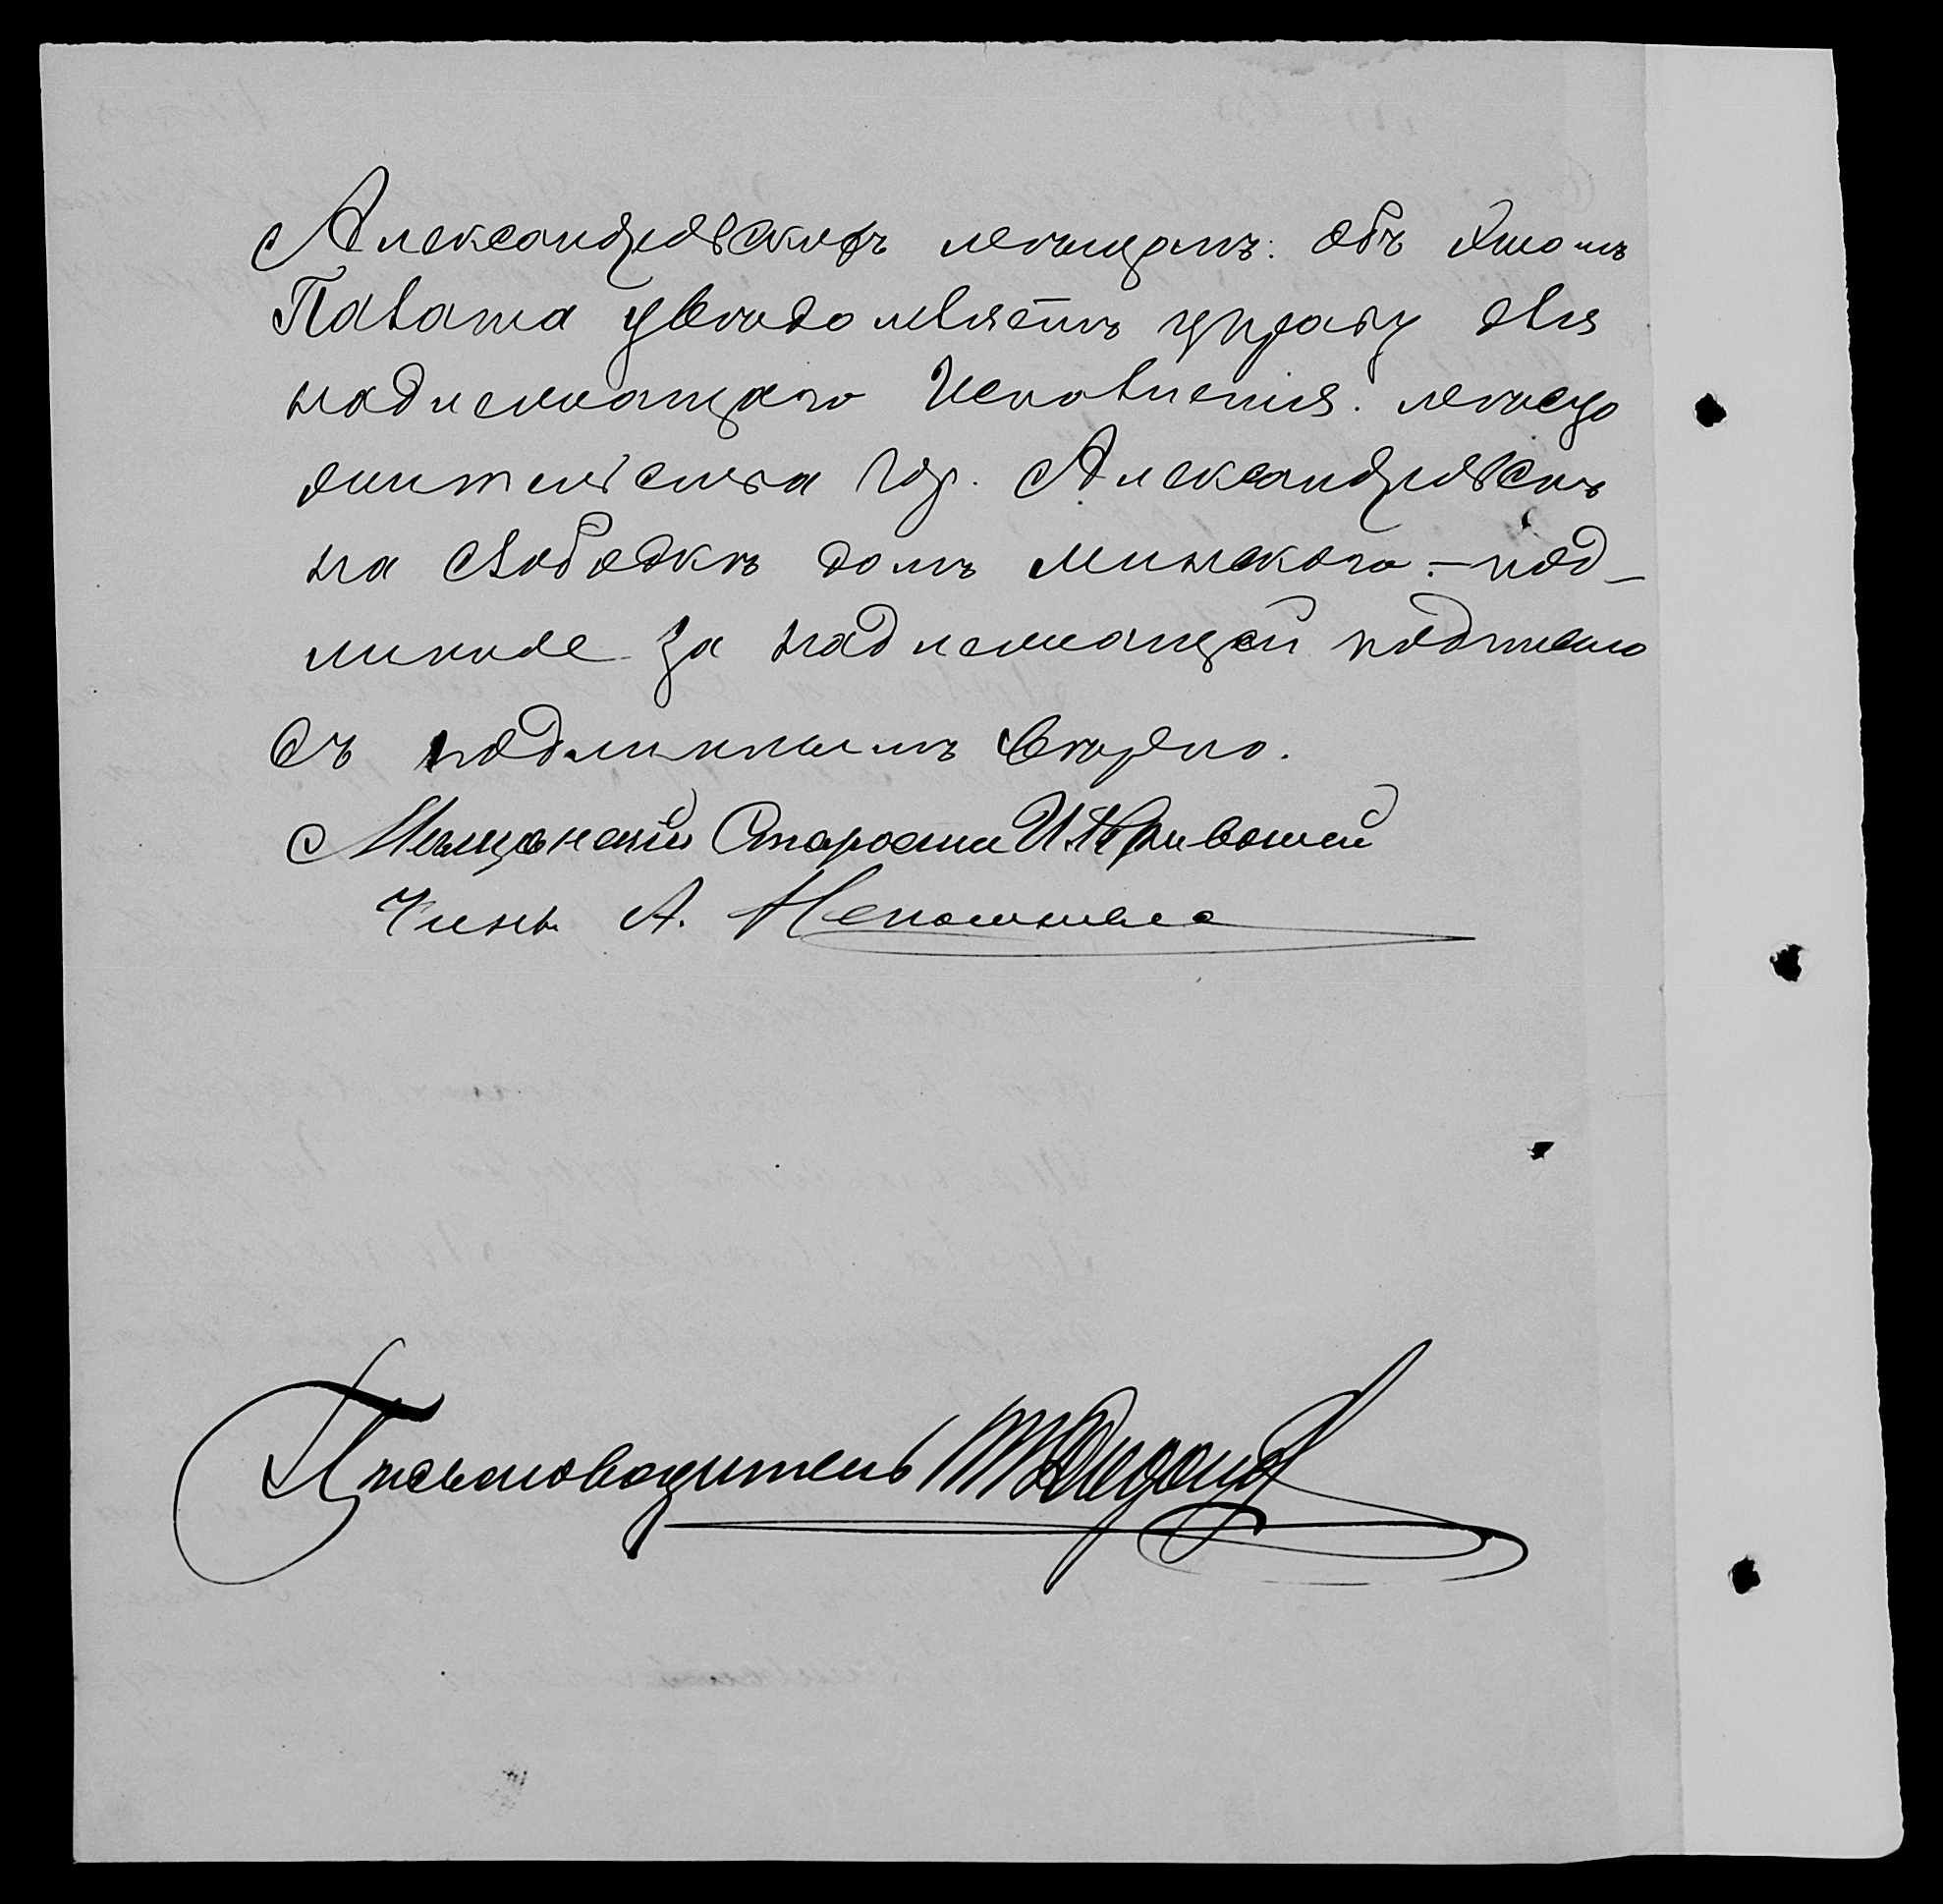 Александровскихъ мѣщанъ: объ этомъ
Палата увѣдомляетъ управу для
надлежащаго исполненія. мѣсто
жительства гор. Александровскъ
на слободкѣ домъ Минскаго. – под–
линное за надлежащей подписью
Съ подлиннымъ вѣрно.
Мѣщанскій Староста И.
Члены А.
Письмоводитель